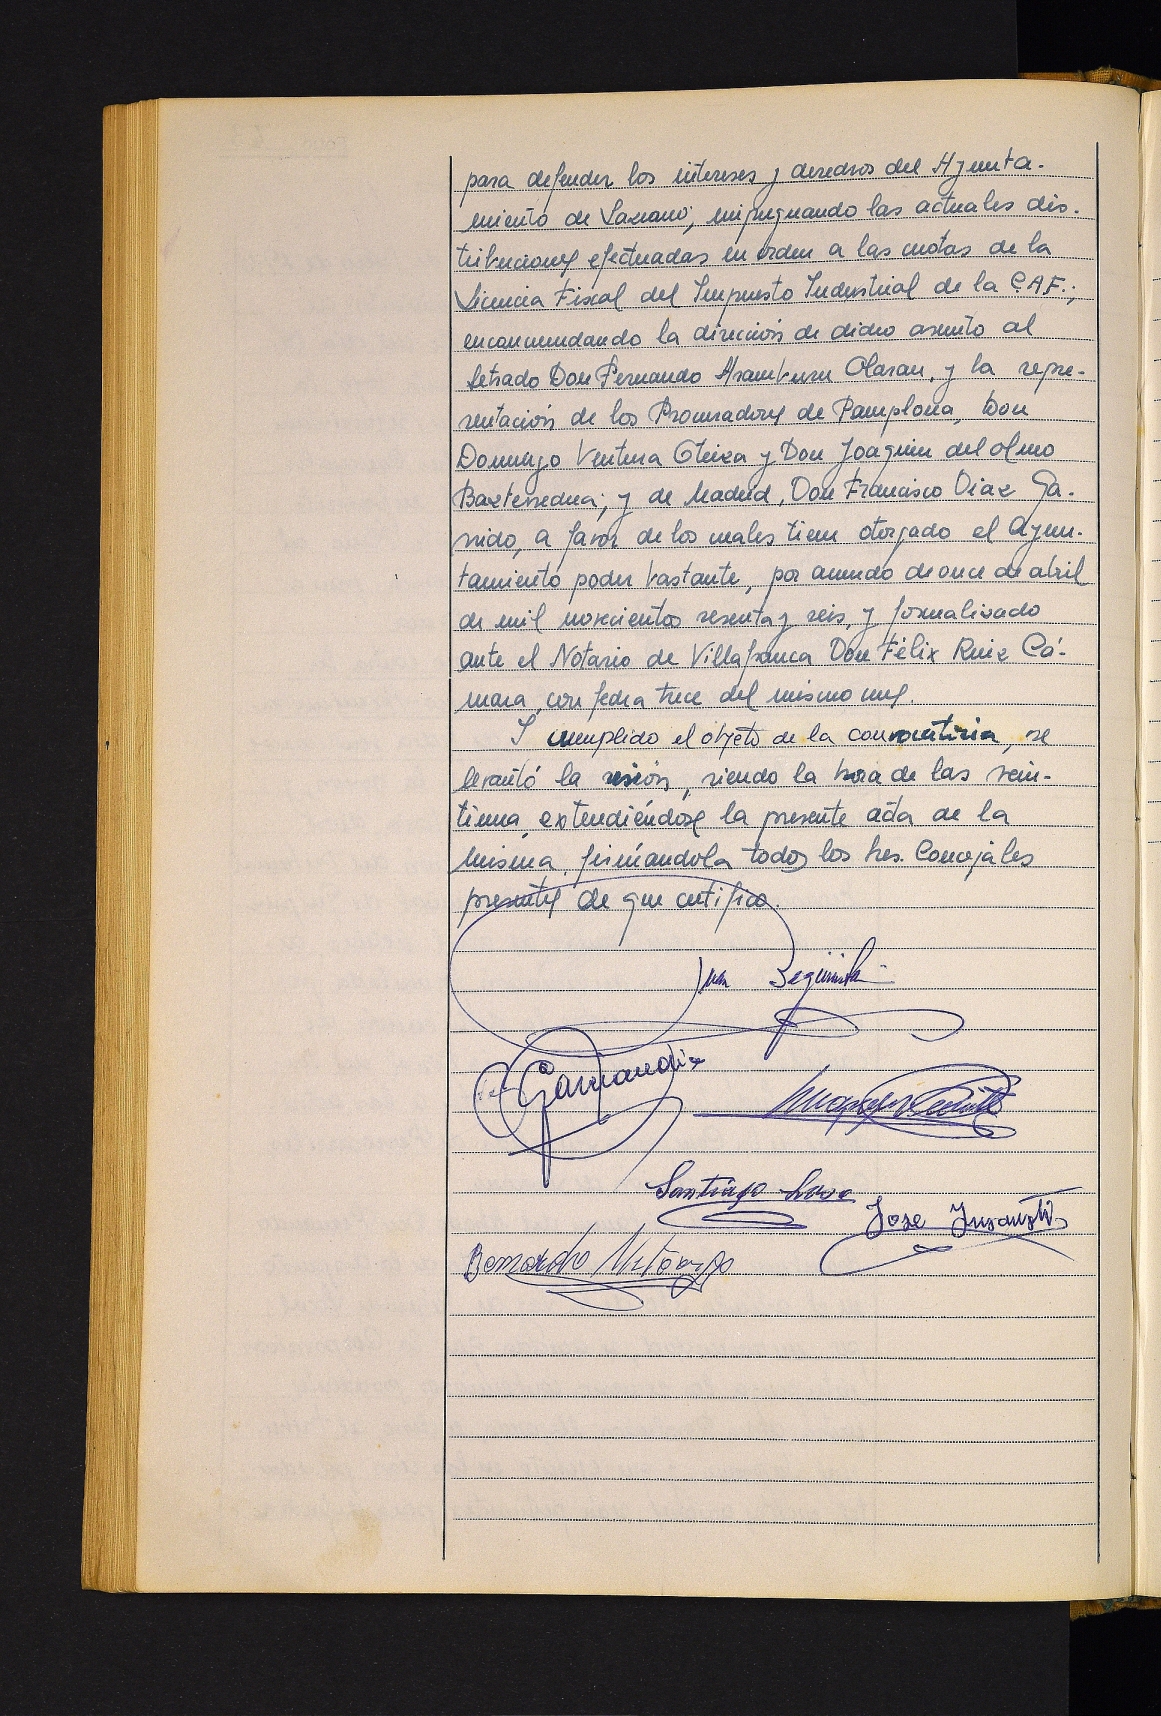 para defender los intereses y derechos del Ayunta-
miento de Lazcano, impugnando las actuales dis-
tribuciones efectuadas en orden a las cuotas de la
Licencia Fiscal del Impuesto Industrial de la C.A.F.;
encomendando la dirección de dicho asunto al
letrado Don Fernando Aramburu Olaran, y la repre-
sentación de los Procuradores de Pamplona, Don
Domingo Ventura Oteiza y Don Joaquin del Olmo
y de Madrid, Don Francisco Diaz Ga-
rrido, a favor de los cuales tiene otorgado el Ayun-
tamiento poder bastante, por acuerdo de once de abril
de mil novecientos sesenta y seis, y formalizado
ante el Notario de Villafranca Don Félix Ruiz Cá-
mara, con fecha trece del mismo mes.
Y cumplido el objeto de la convocatoria, se
levantó la sesión, siendo la hora de las vein-
tiuna, extendiéndose la presente acta de la
misma, firmándola todos los Sres. Concejales
presentes de que certifico.
Garmendia
Santiago
Jose Insausti
Bernardo